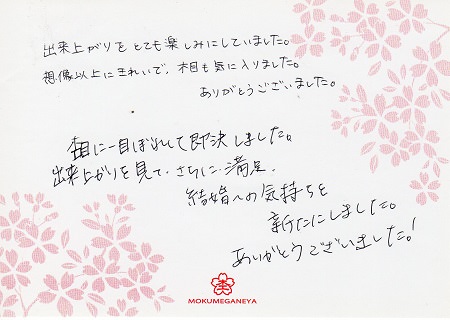 出来上がりをとても楽しみにしていました。
想像以上にきれいで、木目も気に入りました。
ありがとうございました。
木目に一目ぼれして即決しました。
出来上がりを見て、さらに満足。
結婚への気持ちを
新たにしました。
ありがとうございました!
MOKUMEGANEYA